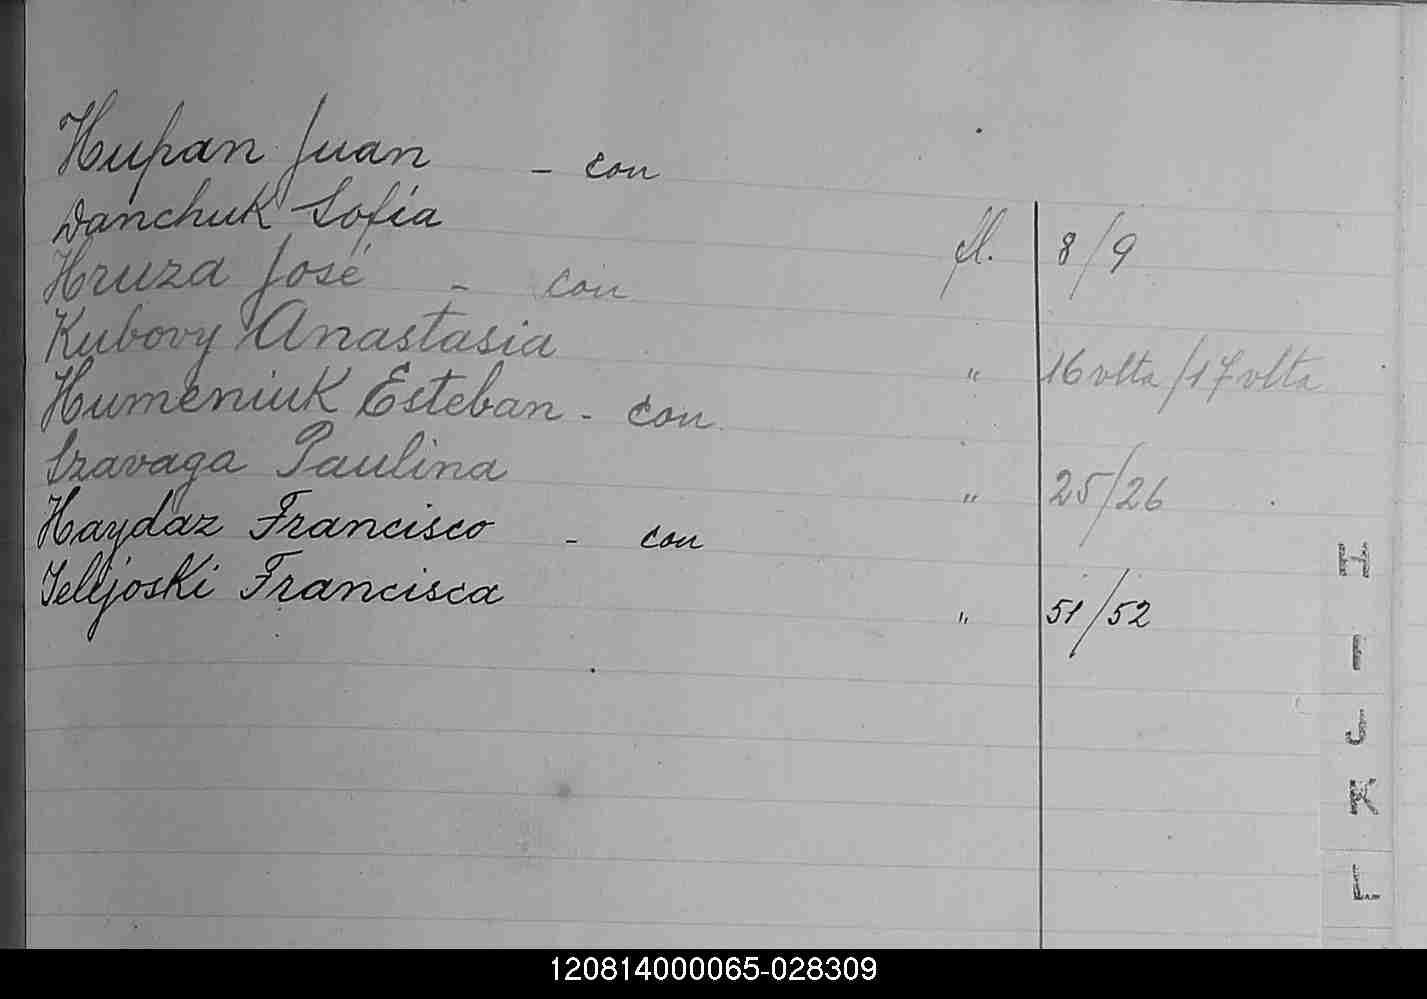 Hupan Juan - con
Danchuk Sofía fl. 8/9
Hruza José - con
Kubovy Anastasia " 16 vlta/17 vlta
Humeniuk Esteban - con
Szavaga Paulina " 25/26
Haydaz Francisco - con
Francisca " 51/52
H
I
J
K
L
120814000065-028309